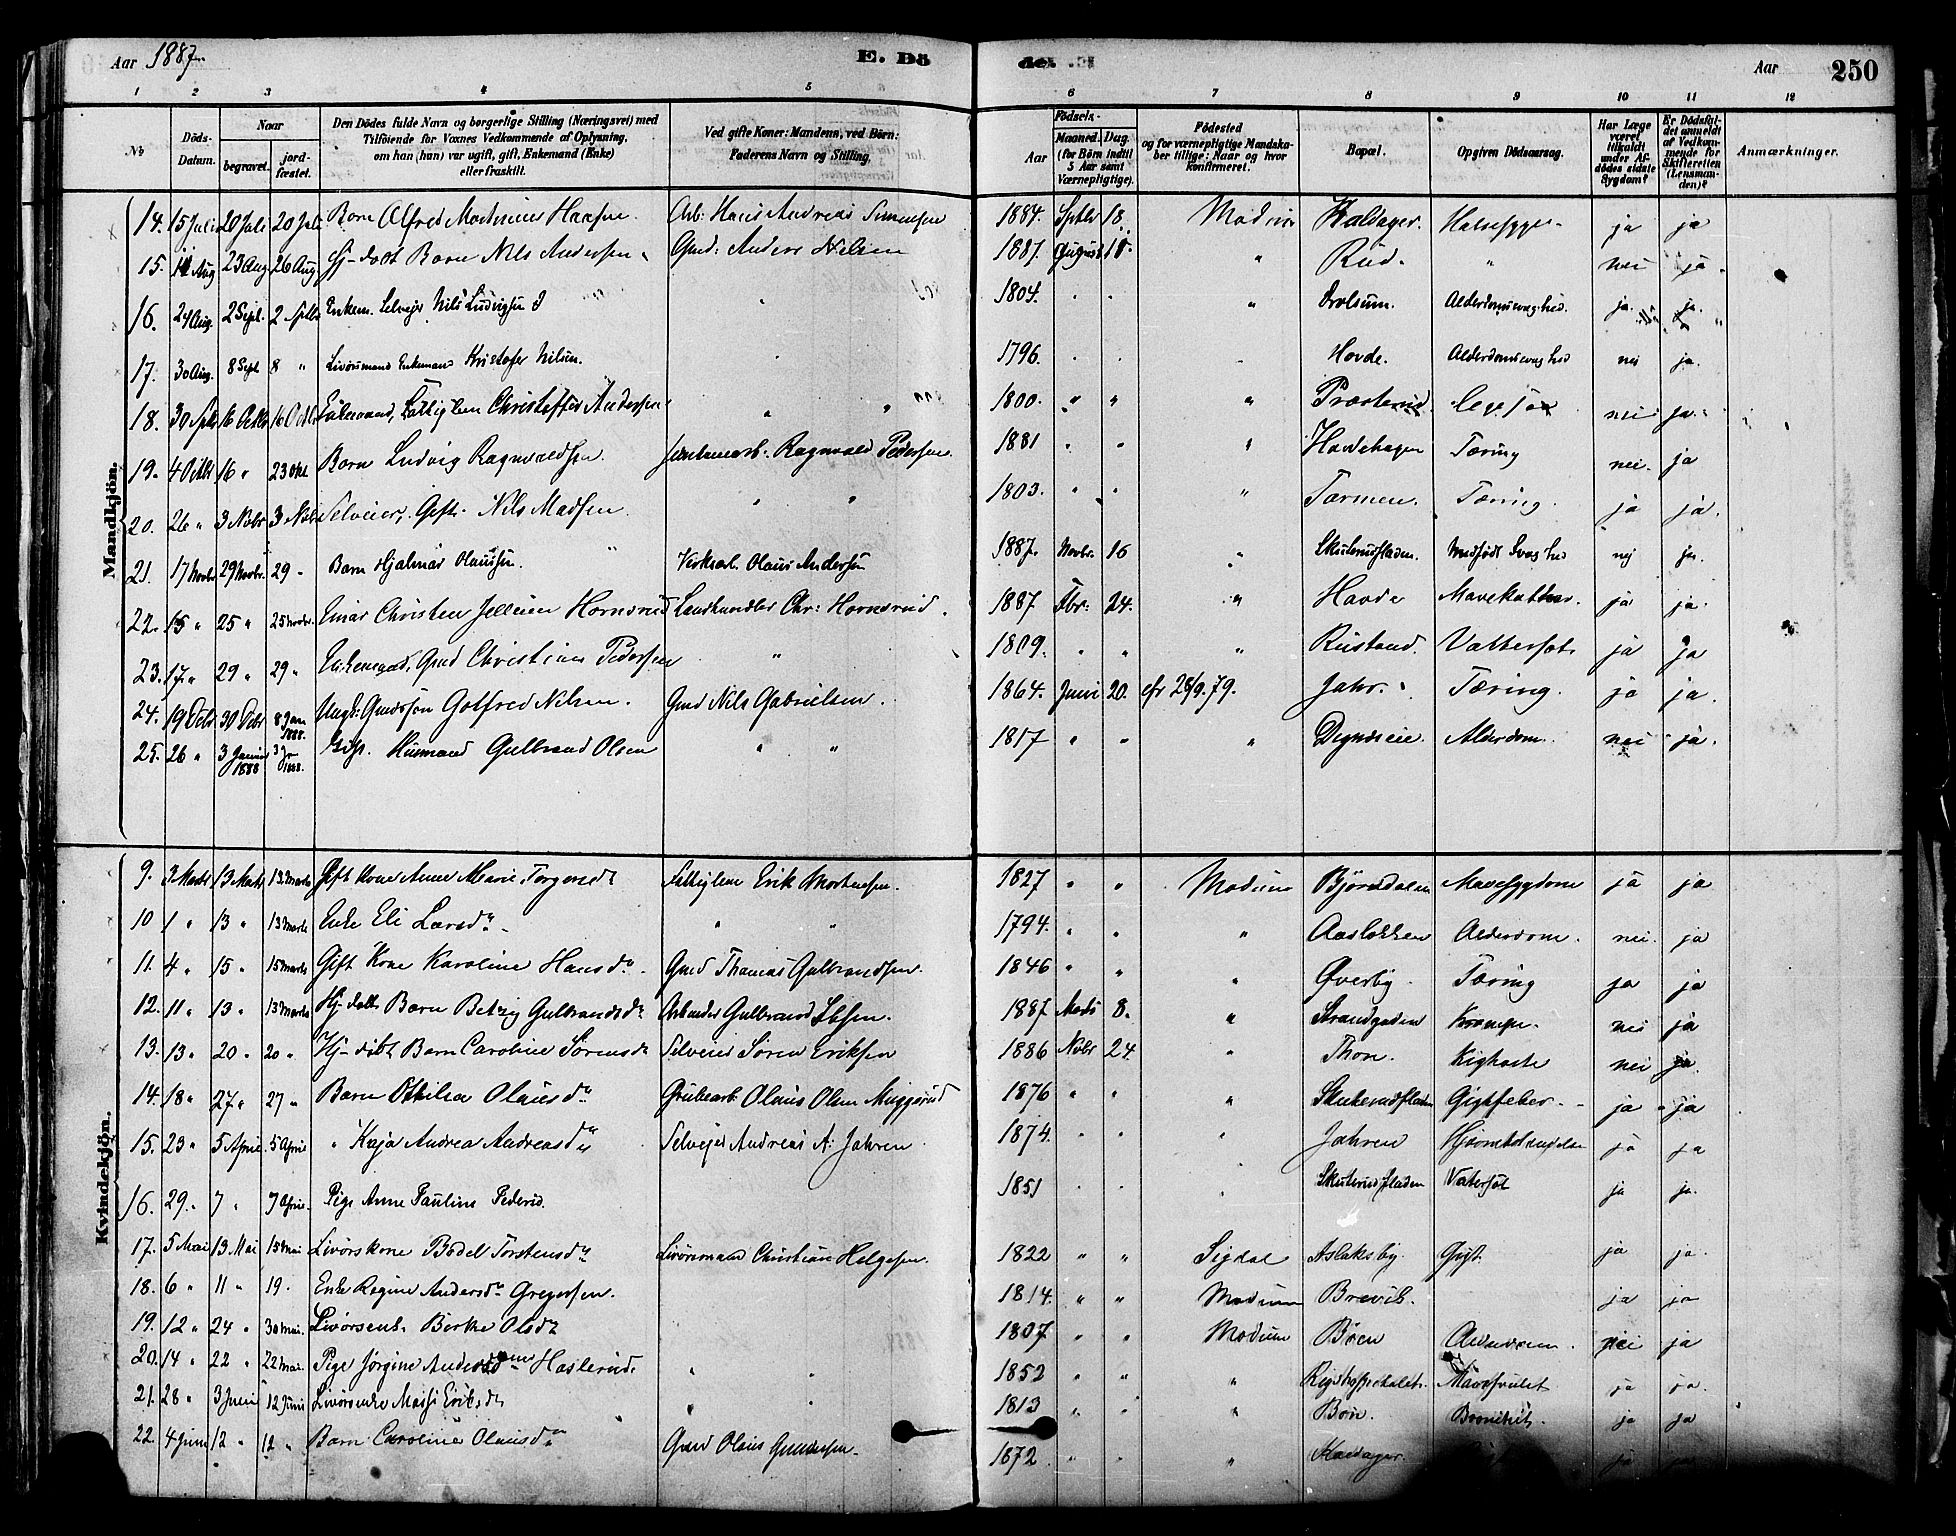 Aar 1887. E. Dö de. Aar 250
1 2 3 4 5 6 7 8 9 10 11 12
No Döds-Datum. Naar begravet. jordfæstet. Den Dödes fulde Navn og borgerlige Stilling (Næringsvei) med Tilföiende for Voxnes Vedkommende af Oplysning, om han (hun) var ugift, gift, Enkemand (Enke) eller fraskilt. Ved gifte Koner: Mandens, ved Börn: Faderens Navn og Stilling, Födsels- Aar Maaned. Dag. (for Börn indtil 5 Aar samt Værnepligtige). Födested og for værnepligtige Mandskaber tillige: Naar og hvor konfirmeret. Bopæl. Opgiven Dödsaarsag. Har Læge været tilkaldt under Afdödes sidste Sygdom? Er Dödsfaldet anmeldt af Vedkommende for Skifteretten (Lensmanden)? Anmærkninger.
Mandkjön.
14. 15 Juli 20 Juli 20 Juli Barn Alfred Martinius Hansen. Arb: Hans Andreas Simensen 1884. Sptbr 18. Modum Kaldager. Halsesyge. ja ja
15. 11 Aug 23 Aug 26 Aug Hj-döbt Barn Nils Andersen Gmd: Anders Nilsen 1887. August 10. " Rud. " nei ja.
16. 24 Aug. 2 Sept. 2 Septbr Enkem. Selvejer Nils Ludvigsen 1804. " " " Drolsum. Alderdomssvaghed ja. ja.
17. 30 Aug. 8 Sept 8 " Livörsmand Enkemand Kristofer Nilsen. " 1796. " " " Hovde. Alderdomssvaghed nei ja.
18. 30 Sptbr 16 Octbr 16 Octbr Enkemand, Fattiglem Christoffer Andersen " " 1800. " " " Præsterud. nei ja.
19. 4 Octbr 16 " 23 Okt Barn Ludvig Ragnvaldsen. Ragnvald Pedersen. 1881 " " " Hovdehagen Tæring nei. ja
20. 26 " 3 Nvbr 3 Nvbr Selveier, Gift. Nils Madsen. " " 1803. " " " Tarmen. Tæring. ja ja.
21. 17 Novbr 29 Novbr. 29 " Barn Hjalmar Olaussen. Olaus Andersen 1887. Novbr. 16 " Skuterudfladen. Medfödt Svaghed nej ja.
22. 15 " 25 " 25 Novbr. Einar Christen Hornsrud Landhandler Chr: Hornsrud. 1887 Fbr: 24. " Hovde Mavekatharr. ja ja.
23. 17 " 29 " 29 " Enkemand, Gmd Christian Pedersen " 1809. " " " Rustand. Vattersot. ja ja
24. 19 Decbr 30 Decbr 8 Jan 1888. Ungk. Gmdssön Gotfred Nilsen. Gmd Nils Gabrielsen. 1864. Juni 20. cfr 28/9.79. Jahr. Tæring. ja ja.
25. 26 " 3 Januar 1888 3 Jan 1888. Gift. Husmand Gulbrand Olsen " " 1817 " " " Degneseie. Alderdom. nei ja.
Kvindekjön.
9. 3 Marts 13 Marts 13 Marts Gift Kone Anne Marie Torgersdr Fattiglem Erik Mortensen. 1827 " " Modum Björndalen Mavesygdom ja ja
10 1 " 13 " 13 Marts Enke Eli Larsdr " " 1794. " " " Aaslökken Alderdom. nei. ja
11. 4 " 15 " 15 Marts Gift Kone Karoline Hansdr. Gmd Thomas Gulbrandsen. 1846 " " " Överby. Tæring ja ja
12. 11 " 13 " 13 Marts Hj. döbt Barn Betzy Gulbrandsdr Arbeider Gulbrand Ibsen. 1887 Marts 8. " Strandgaden Krampe. nei ja
13. 13 " 20 " 20 " Hj-döbt Barn Caroline Sörensdr Selveier Sören Eriksen 1886 Nvbr 24. " Thon. Kighoste nei ja.
14. 18 " 27 " 27 " Barn Ottilia Olausdr Grubearb: Olaus Olsen Muggerud 1876 " " " Skuterudfladen Gigtfeber. ja ja
15. 23 " 5 April 5 April " Kaja Andrea Andreasdr Selvejer Andreas A: Jahren 1874. " " " Jahren ja ja
16. 29. " 7 " 7 April. Pige Anne Pauline Pedersd. 1851 " " " Skuterudfladen Vatersot ja ja.
17. 5 Mai 13 Mai 15 Mai Livörskone Bodel Torstensdr Livörsmand Christian Helgesen. 1822 " " Sigdal Aslaksby. Gigt. ja ja.
18. 6 " 11 " 19. Enke Regine Andersdr Gregersen. 1814. " " Modum Brevik. ja ja
19. 12 " 24 " 30 Mai. Livörsenke Berthe Olsdr 1807 " " Modum Böen Alderdom. nei ja
20. 14 " 22 " 22 Mai. Pige Jörgine Haslerud. " 1852 " " " Rigshospitalet. ja ja.
21. 28 " 3 Juni 12 Juni Livörsenke Eriksdr " " 1813 " " " Böen. Bronchit. ja ja
22. 4 Juni 12 " 12 " Barn Caroline Olausdr Gmd Olaus Gundersen. 1872 " " " Kaldager. ja ja